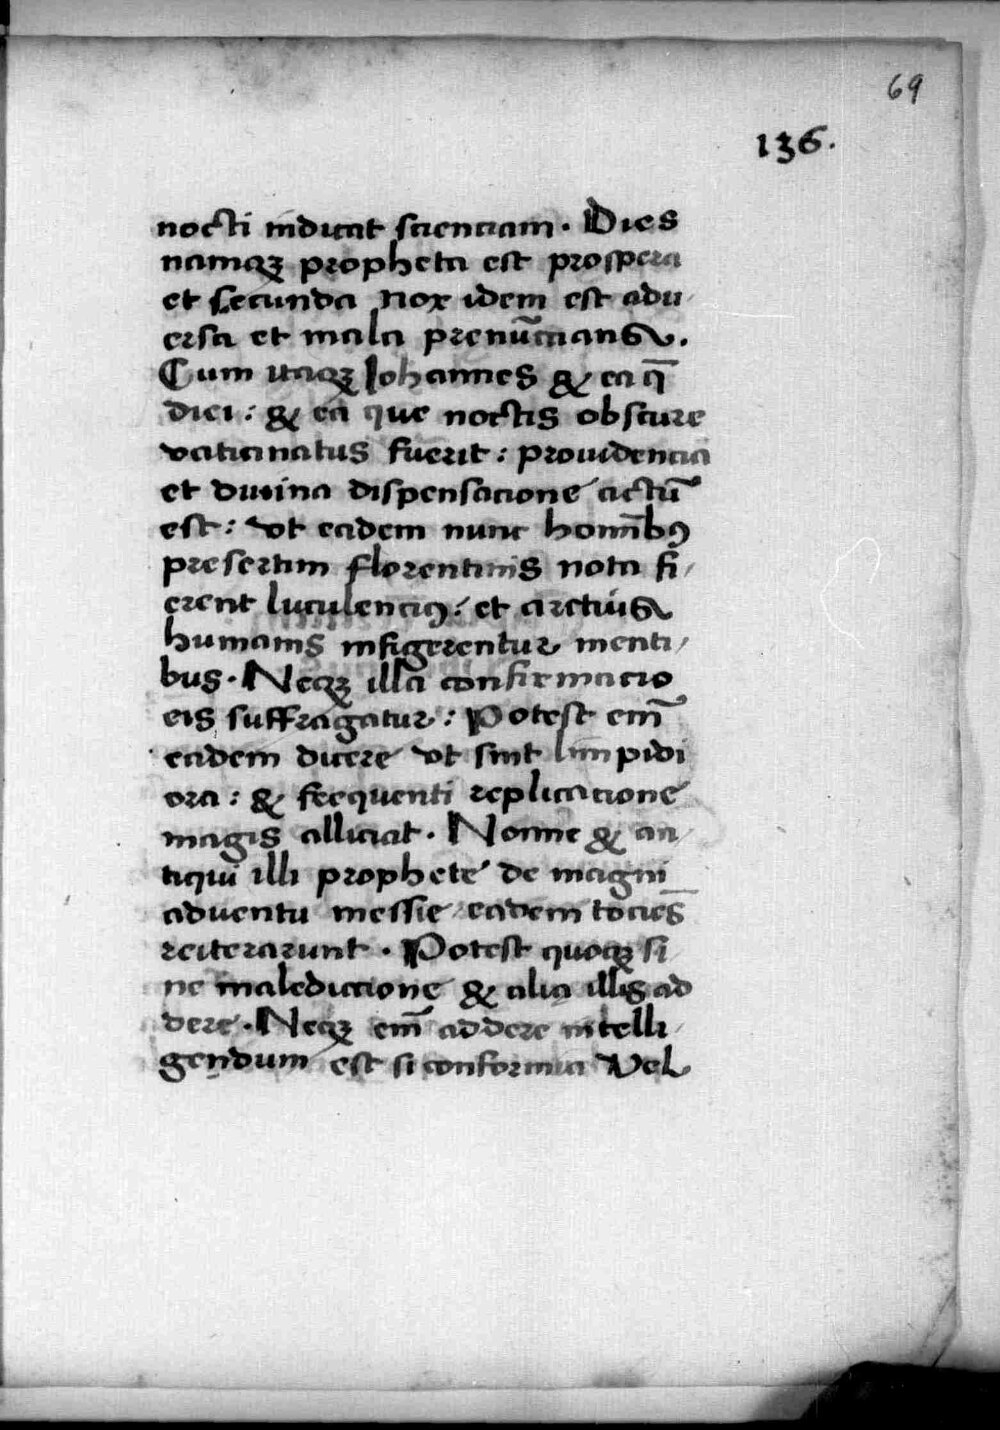 69
136.
nocti indicat scienciam. Dies
namqꝫ propheta est prospera
et secunda nox idem est adu-
ersa et mala prenūcians.
Cum itaqꝫ Johannes & ea q̄
diei: & ea que noctis obscure
vaticinatus fuerit: prouidencia
et diuina dispensacione actū
est: vt eadem nunc homībꝰ
presertim florentinis nota fi-
erent luculenciꝰ: et arctius
humanis infigerentur menti-
bus. Neqꝫ illa confirmacio
eis suffragatur: Potest em̄
eadem dicere vt sint limpidi
ora: & frequenti replicacione
magis alliciat. Nonne & an-
tiqui illi prophete de magni
aduentu messie eadem tocies
reiterarunt. Potest quoqꝫ si
ne malediccione & alia illis ad
dere. Neqꝫ em̄ addere intelli-
gendum est si conformia vel